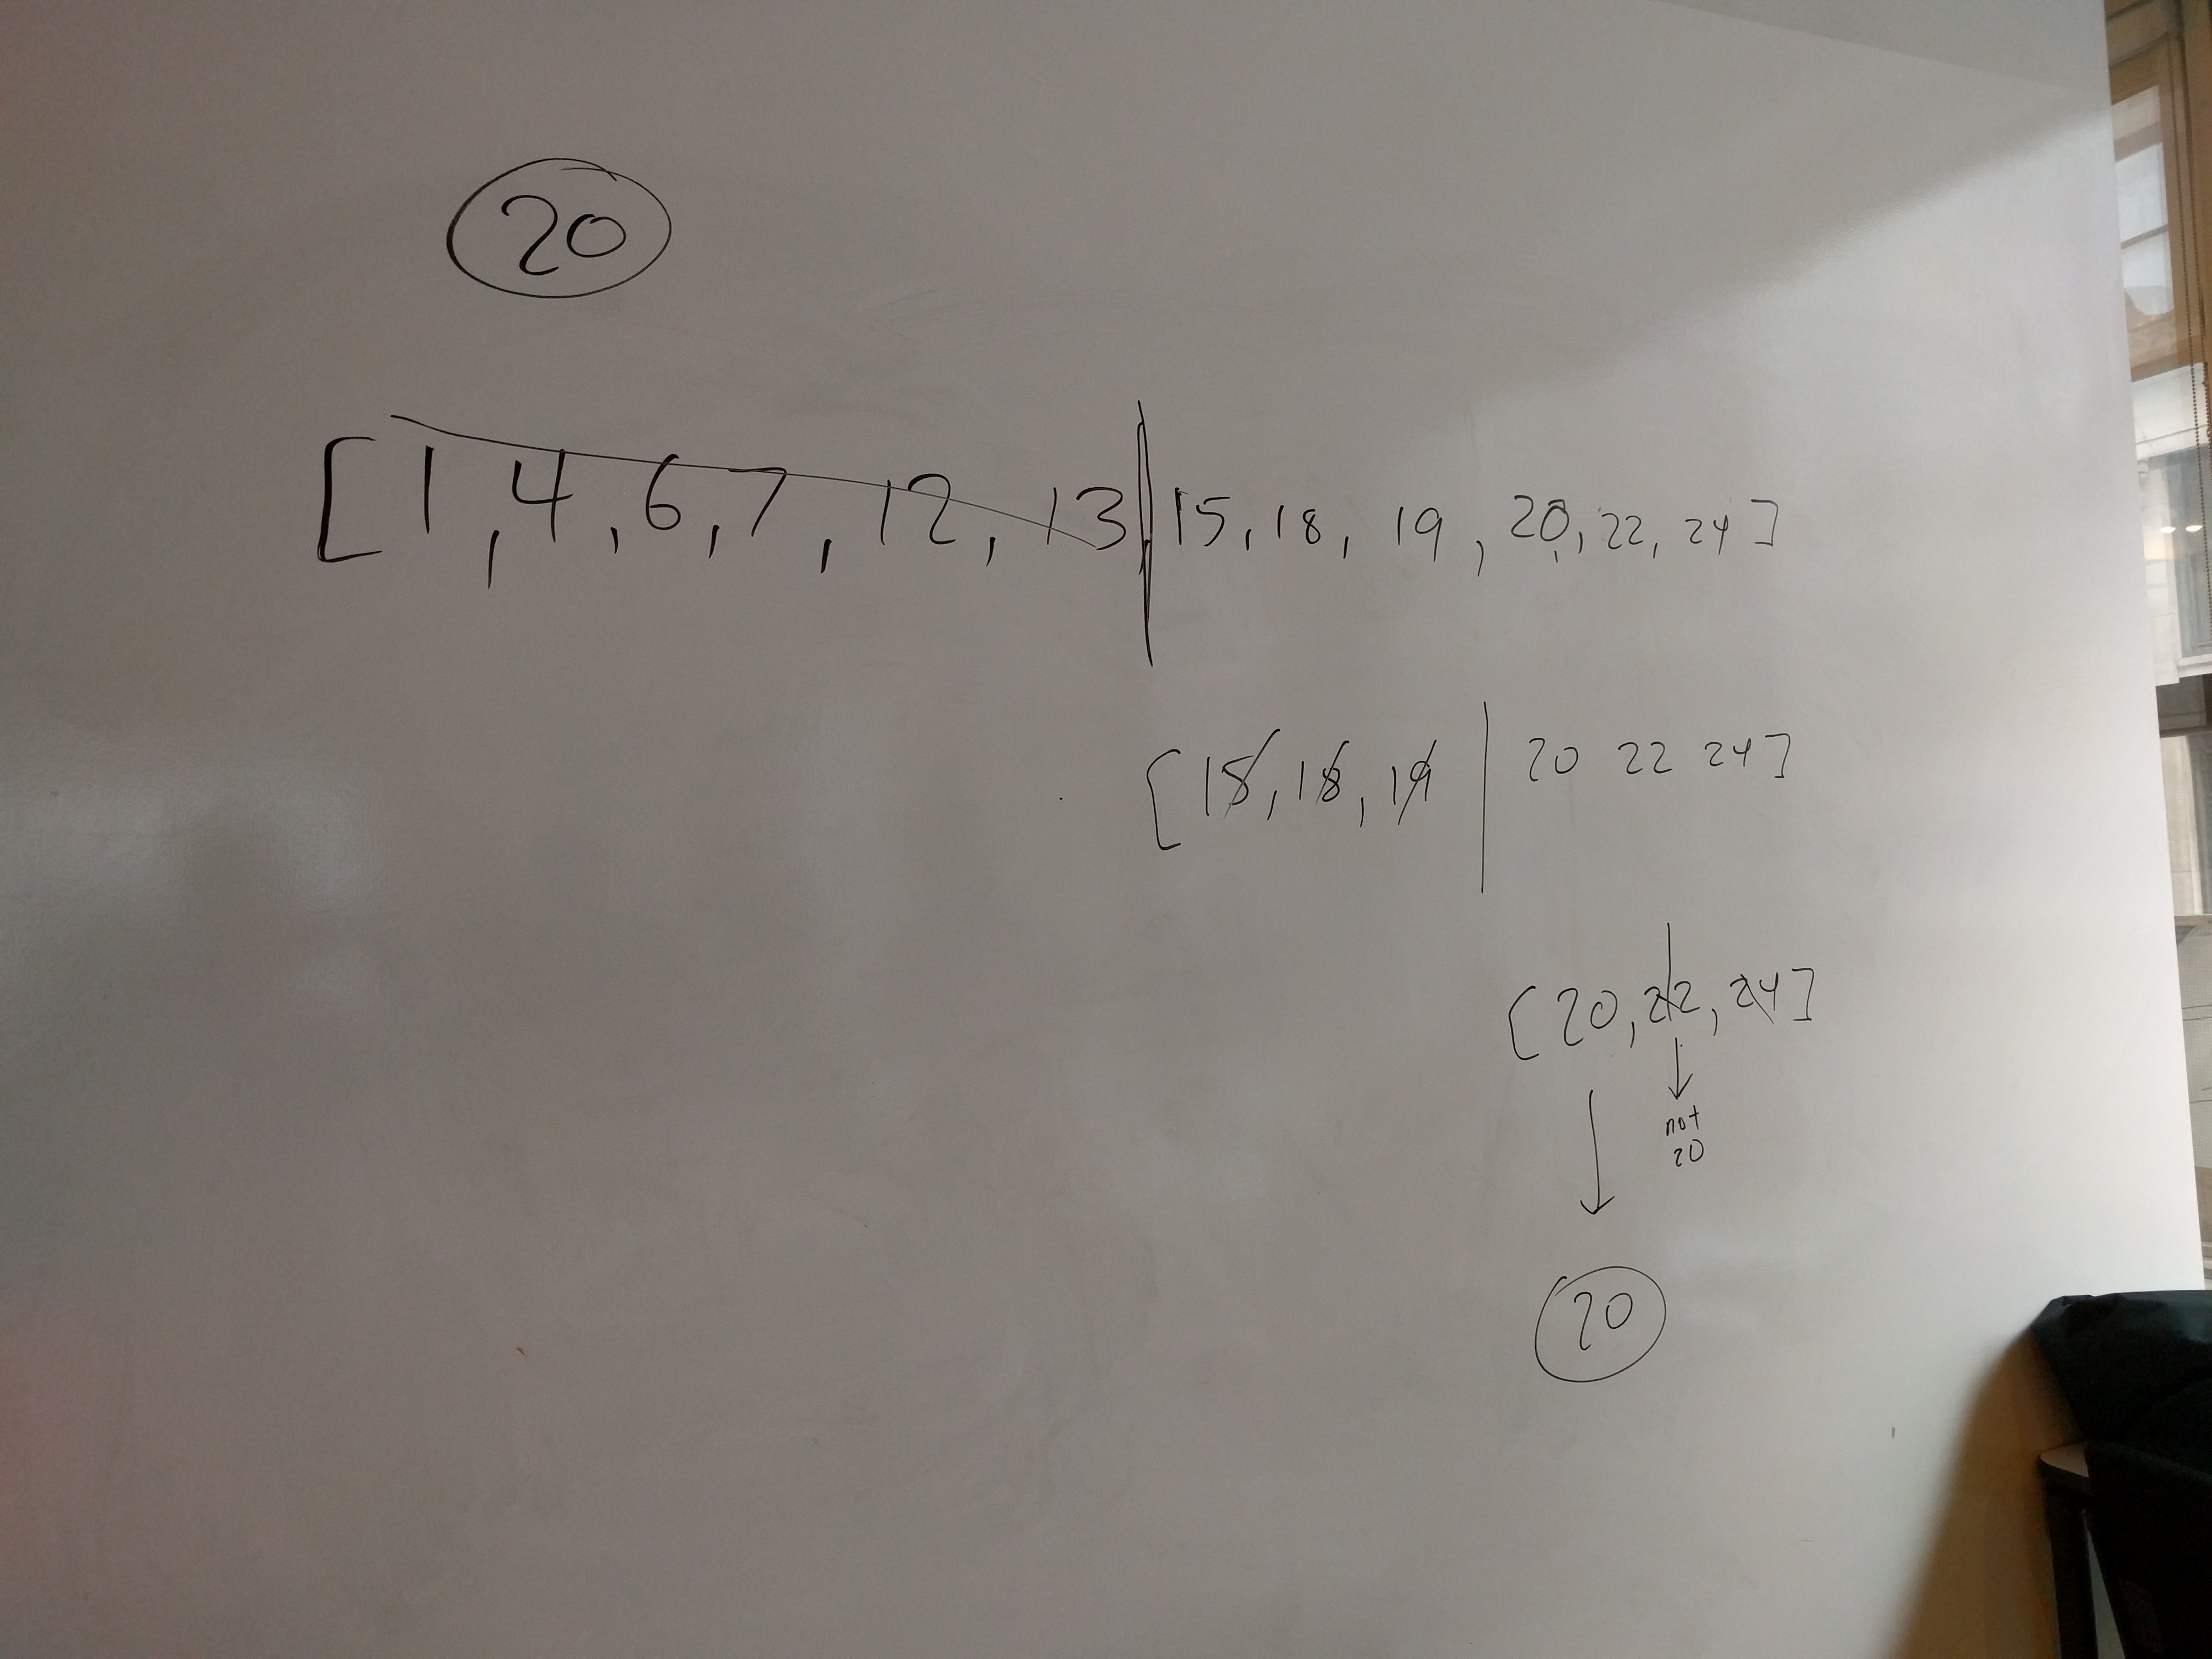 20
[1, 4, 6, 7, 12, 13 | 15, 18, 19, 20, 22, 24]
[15, 18, 19 | 20 22 24]
[20, 22, 24]
not
20
20